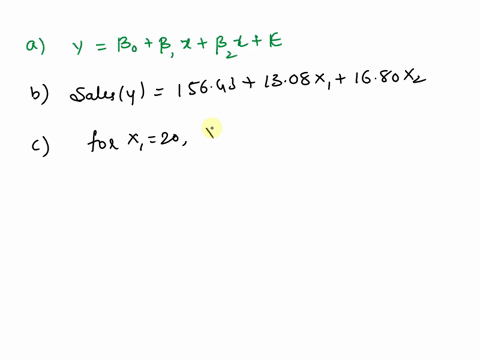 a) y = β₀ + β₁x + β₂x + E
b) Sales(y) = 156.43 + 13.08x₁ + 16.80x₂
c) for x₁ = 20,